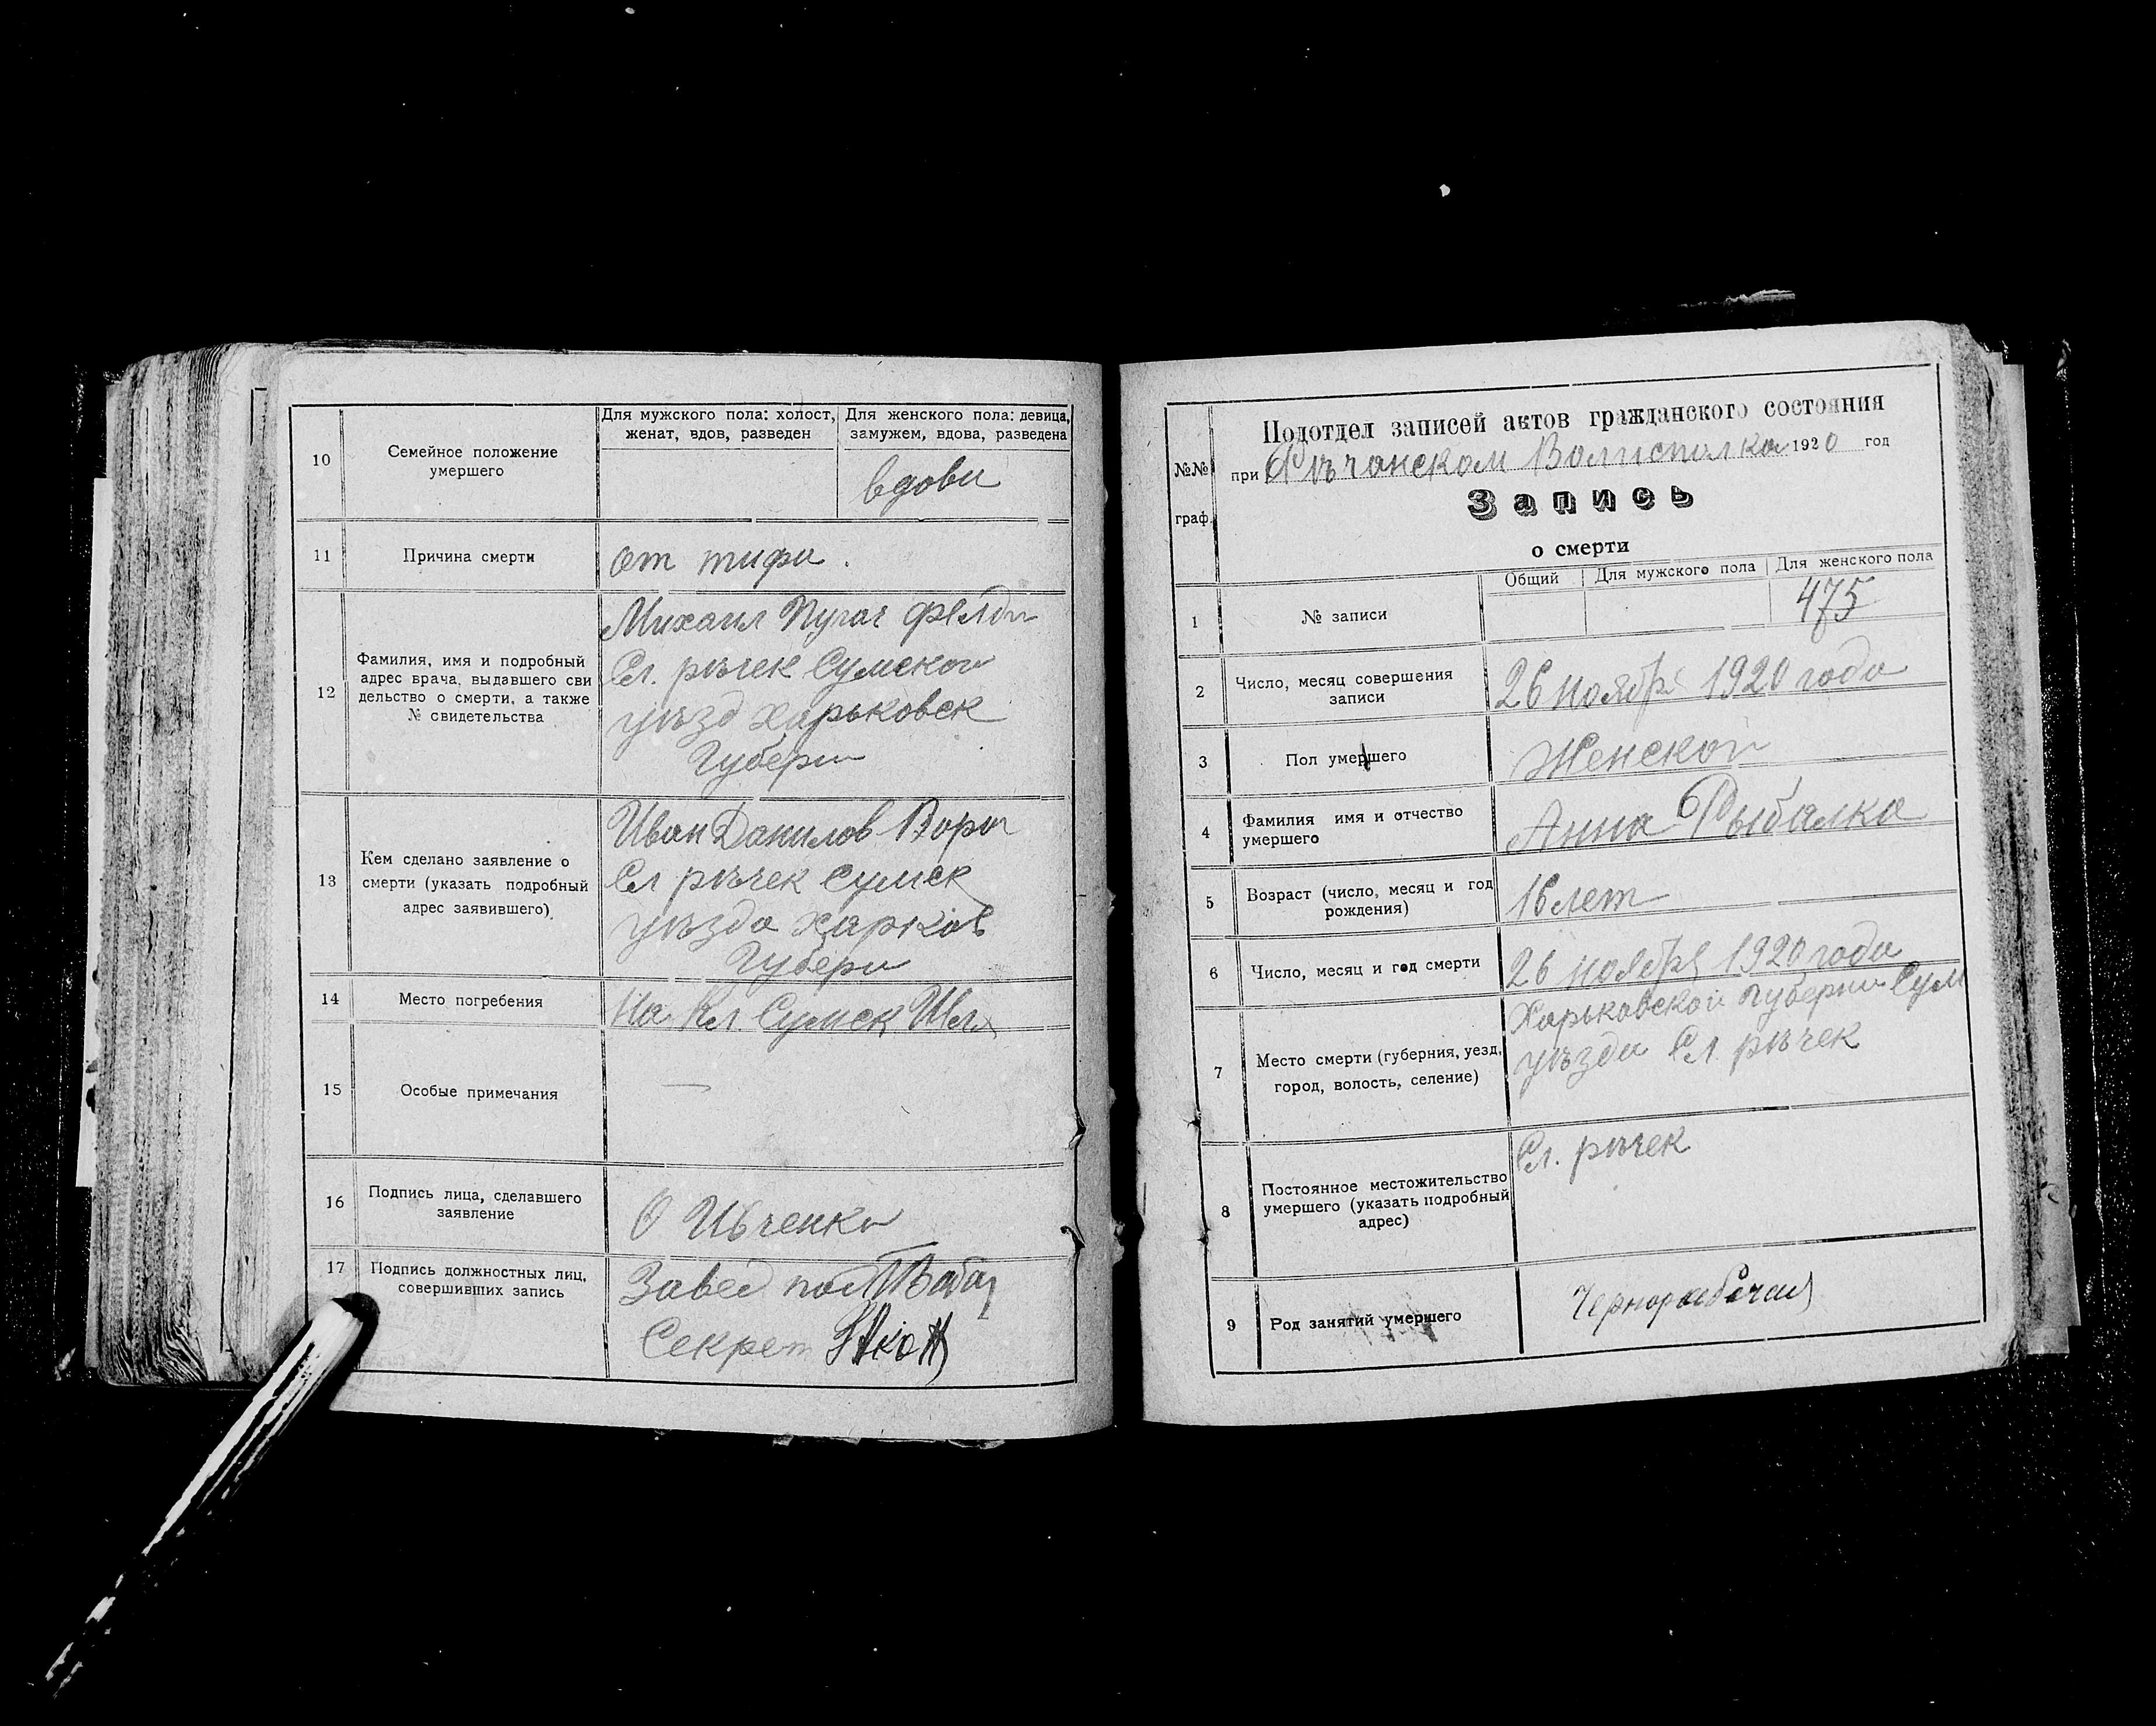 10
Семейное положение
умершего
Для мужского пола: холост,
женат, вдов, разведен
Для женского пола: девица,
замужем, вдова, разведена
вдова
11
Причина смерти
от тифа.
12
Фамилия, имя и подробный
адрес врача, выдавшего сви
дельство о смерти, а также
№ свидетельства
Михаил Пугач
Сл. рѣчек Сумской
уѣзд харьковск
Губерн
13
Кем сделано заявление о
смерти (указать подробный
адрес заявившего)
Иван Данилов
Сл рѣчек Сумск
уѣзда харков
Губерн
14
Место погребения
На Кл. Сумск
15
Особые примечания
—
16
Подпись лица, сделавшего
заявление
О Ивченко
17
Подпись должностных лиц,
совершивших запись
Завед
Секрет
№№
граф.
Подотдел записей актов гражданского состояния
при Рѣчанском 1920 год
Запись
о смерти
1
№ записи
Общий
Для мужского пола
Для женского пола
475
2
Число, месяц совершения
записи
26 ноября 1920 года
3
Пол умершего
Женской
4
Фамилия имя и отчество
умершего
Анна Рыбалка
5
Возраст (число, месяц и год
рождения)
16 лет
6
Число, месяц и год смерти
26 ноября 1920 года
7
Место смерти (губерния, уезд,
город, волость, селение)
Харьковской губернии Сум
уѣзда Сл. рѣчек
8
Постоянное местожительство
умершего (указать подробный
адрес)
Сл. рѣчек
9
Род занятий умершего
Чернорабочая